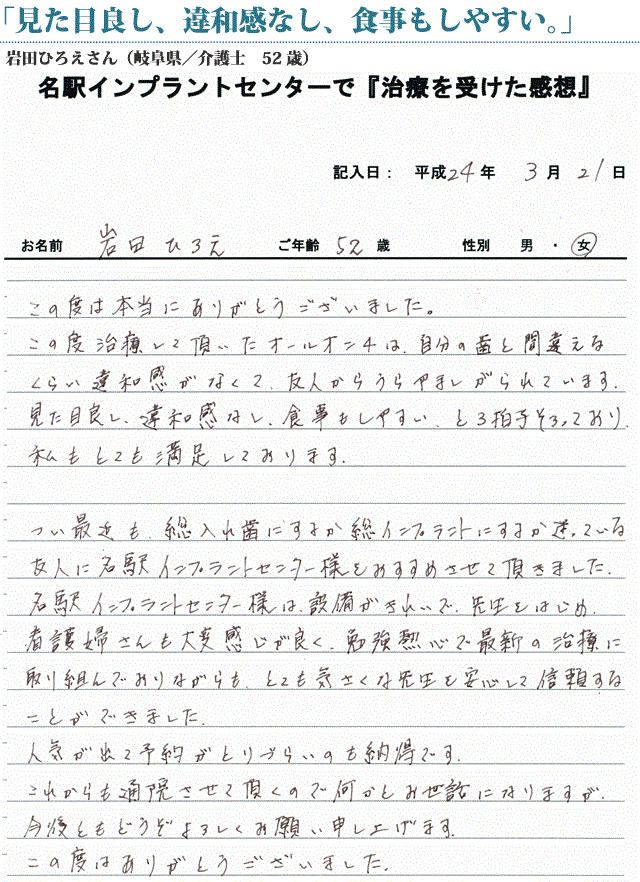 「見た目良し、違和感なし、食事もしやすい。」
岩田ひろえさん（岐阜県／介護士　52歳）
名駅インプラントセンターで『治療を受けた感想』
記入日：　平成24年　3月　21日
お名前　岩田ひろえ　ご年齢　52歳　性別　男・女
この度は本当にありがとうございました。
この度治療して頂いたオールオン4は、自分の歯と間違える
くらい違和感がなくて、友人からうらやましがられています。
見た目良し、違和感なし、食事もしやすい、と3拍子そろっており、
私もとても満足しております。
つい最近も、総入れ歯にするか総インプラントにするか迷っている
友人に名駅インプラントセンター様をおすすめさせて頂きました。
名駅インプラントセンター様は、設備がきれいで、先生をはじめ、
看護婦さんも大変感じが良く、勉強熱心で最新の治療に
取り組んでおりながらも、とても気さくな先生を安心して信頼する
ことができました。
人気が出て予約がとりづらいのも納得です。
これからも通院させて頂くので何かとお世話になりますが、
今後ともどうぞよろしくお願い申し上げます。
この度はありがとうございました。